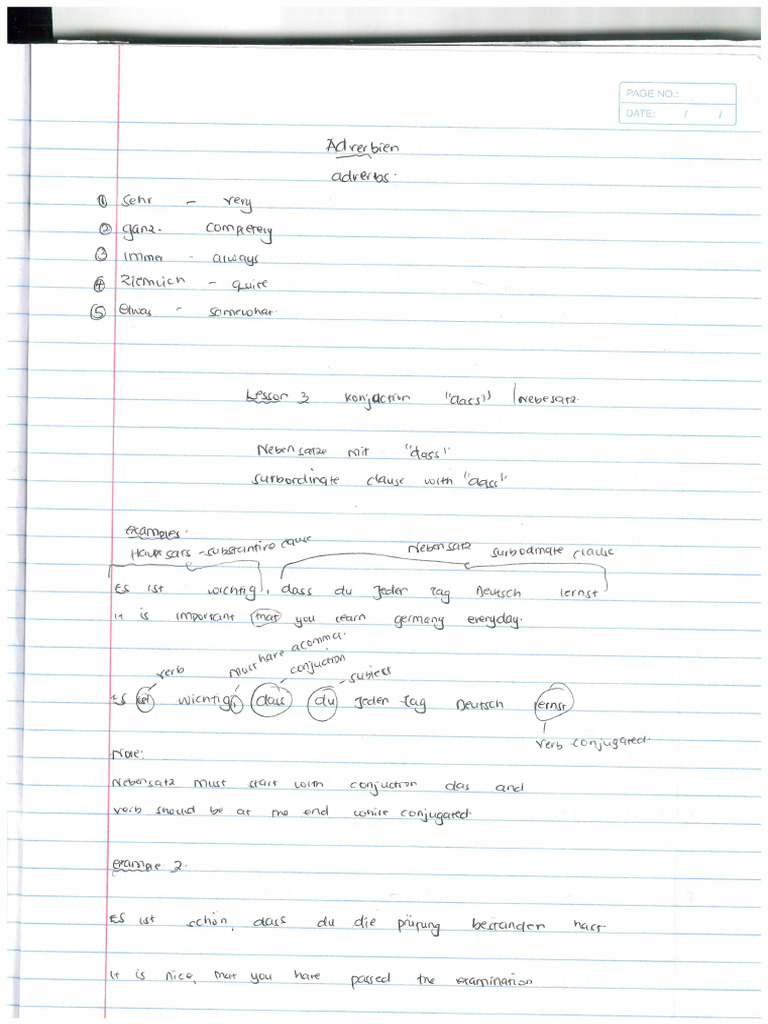 PAGE NO.:
DATE: / /
Adverbien
adverbs.
① sehr - very
② ganz - completely
③ immer - always
④ Ziemlich - quite
⑤ etwas - somewhat
Lesson 3 Konjuction "dass" | Nebesatz.
Nebensatze mit "dass"
surbordinate clause with "dass"
examples.
Haupt sats - substantive clause Nebensatz surbodinate clause
Es ist wichtig, dass du Jeden Tag Deutsch lernst
it is important that you learn germany everyday.
verb must have acomma. conjuction subject
Es ist wichtig, dass du Jeden Tag Deutsch lernst
verb conjugated.
Note:
Nebensatz must start with conjuction das and
verb should be at the end while conjugated.
example 2.
Es ist schön, dass du die prüfung bestanden hast
it is nice, that you have passed the examination